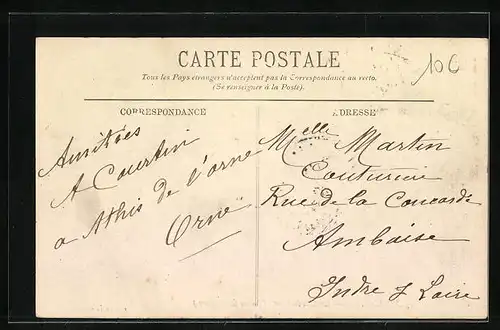 CARTE POSTALE
Tous les Pays etrangers n'acceptent pas la Correspondance au recto.
(Se renseigner à la Poste).
10€
CORRESPONDANCE
Amitiées
A Courtin
a Athis de l'orne
Orne
ADRESSE
Melle Martin
Couturière
Rue de la Concorde
Amboise
Indre & Loire